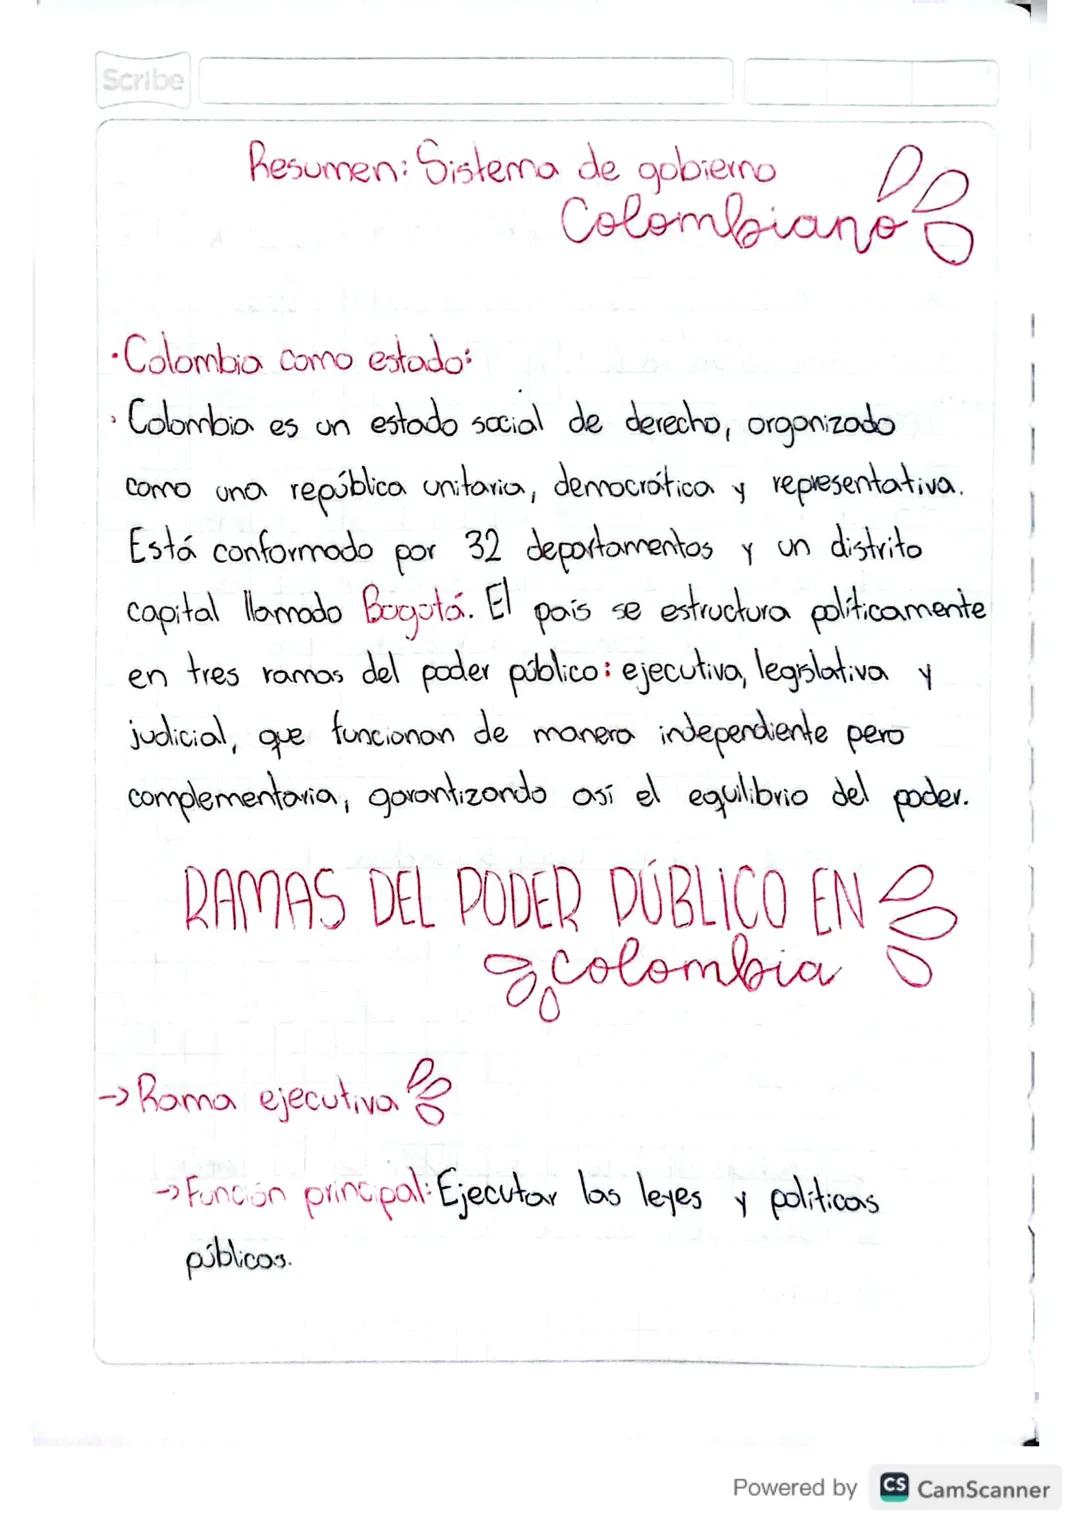 Scribe
Resumen: Sistema de gobierno
Colombiano
·Colombia como estado:
· Colombia es un estado social de derecho, organizado
como una república unitaria, democrática y representativa.
Está conformado por 32 departamentos y un distrito
capital llamado Bogotá. El país se estructura políticamente
en tres ramas del poder público: ejecutiva, legislativa y
judicial, que funcionan de manera independiente pero
complementaria, garantizando así el equilibrio del poder.
RAMAS DEL PODER PÚBLICO EN
colombia
→ Rama ejecutiva
→ Función principal: Ejecutar las leyes y políticas
públicas.
Powered by CS CamScanner